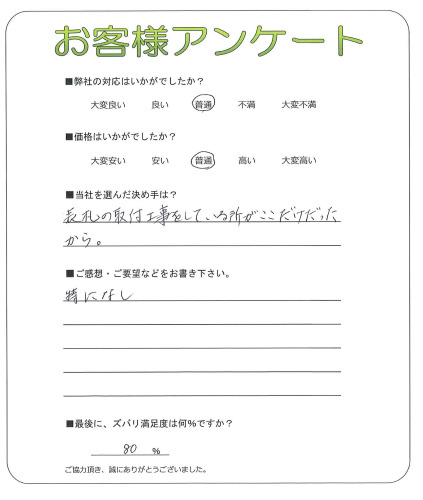 お客様アンケート
■弊社の対応はいかがでしたか？
大変良い 良い 普通 不満 大変不満
■価格はいかがでしたか？
大変安い 安い 普通 高い 大変高い
■当社を選んだ決め手は？
表札の取付工事をしている所がここだけだった
から。
■ご感想・ご要望などをお書き下さい。
特になし
■最後に、ズバリ満足度は何%ですか？
80 %
ご協力頂き、誠にありがとうございました。